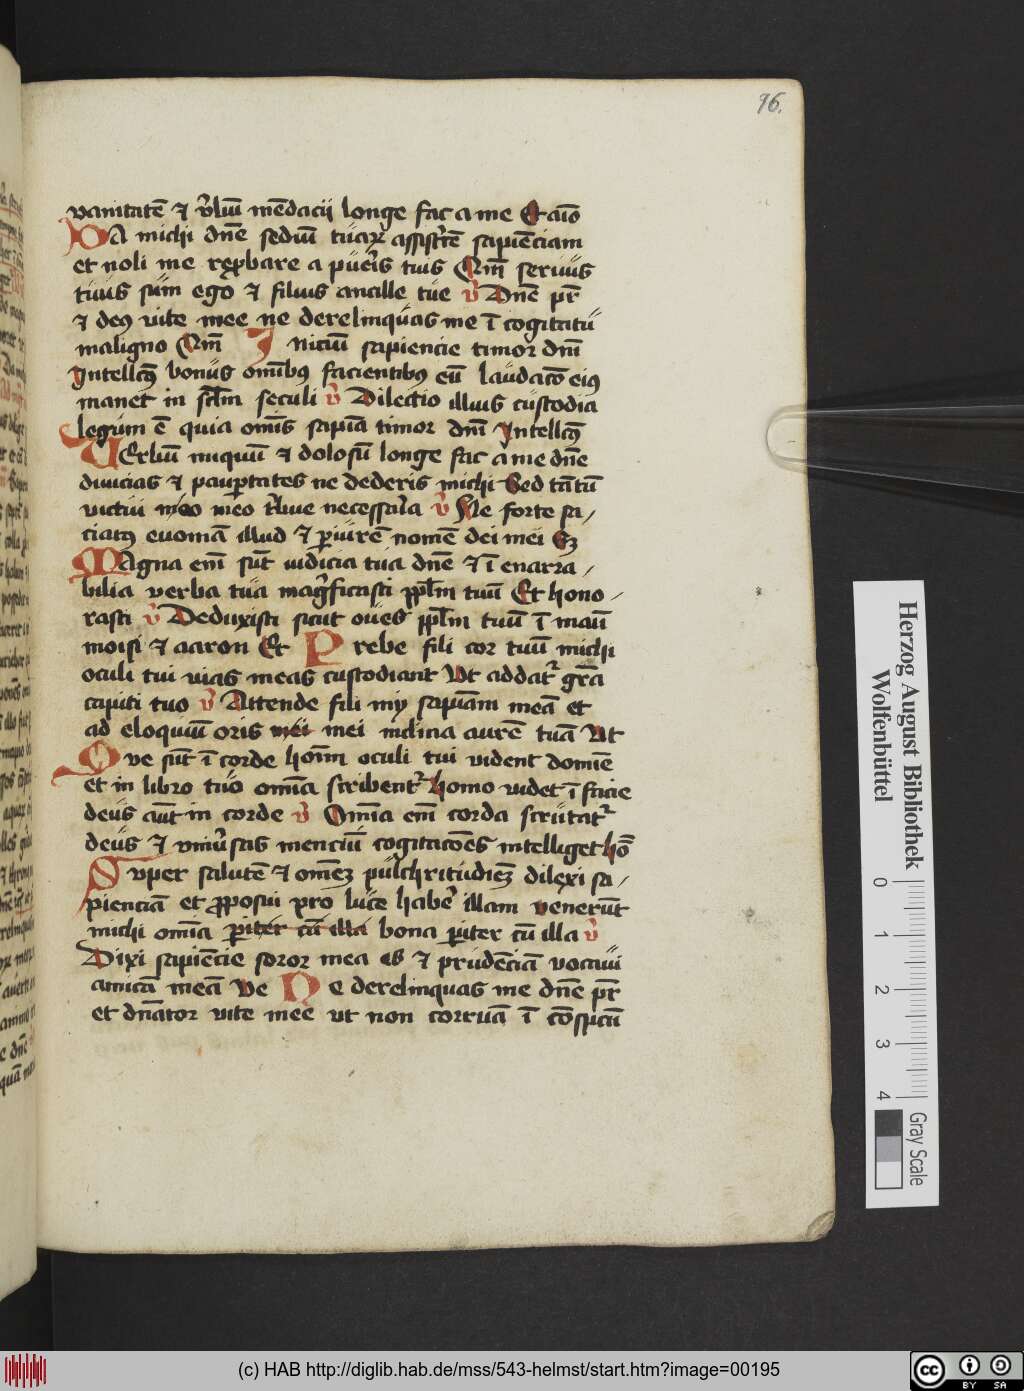 96.
vanitatē ⁊ v̉bū mēdacij longe fac a me Et aīo
DA michi dn̄e sediū tuaꝝ assistr̄ē sapiēciam
et noli me reꝓbare a pueris tuis Qm̄ seruus
tuus sum ego ⁊ filius ancille tue v̉ Dn̄e pr̄
⁊ deꝰ vite mee ne derelinquas me ī cogitatu
maligno Qm̄ Iniciū sapiencie timor dn̄i
Intellcꝰ bonus omībꝰ facientibꝰ eū laudacō eiꝰ
manet in scl̄m seculi v̉ Dilectio illius custodia
legum ē quia omīs sapiā timor dn̄i Intellcꝰ
UErbū iniquū ⁊ dolosū longe fac a me dn̄e
diuicias ⁊ paupertates ne dederis michi Sed tātū
victui meo meo t'bue necessaria v̉ Ne forte sa/
ciatꝰ euomā illud ⁊ ꝑiurē nomē dei mei Sꝫ
MAgna em̄ sūt iudicia tua dn̄e ⁊ ī enarra/
bilia verba tua magn̉ficasti ppl̄m tuū Et hono/
rasti v̉ Deduxisti sicut oues ppl̄m tuū ī manū
moisi ⁊ aaron Et Prebe fili cor tuū michi
oculi tui vias meas custodiant Ut addat̉ gr̄a
capiti tuo v̉ Attende fili mj sapiām meā et
ad eloquiū oris mei mei inclina aurē tuā Ut
Que sūt ī corde hoīm oculi tui vident domīe
et in libro tuo omīa scribent̉ homo videt ī facie
deus aūt in corde v̉ Omīa em̄ corda scrutat̉
deus ⁊ vniủsas menciū cogitacōes intelliget hō
Super salutē ⁊ omēꝫ pulchritudīeꝫ dilexi sa/
pienciā et ꝓposui pro luce habẻ illam venerūt
michi omīa ꝑiter cū illa bona ꝑiter cū illa v̉
Dixi sapiēcie soror mea es ⁊ prudēciā vocaui
amicā meā Ve Ne derelinquas me dn̄e pr̄
et dn̄ator vite mee vt non corruā ī cōspcū
Herzog August Bibliothek
Wolfenbüttel
0 1 2 3 4
Gray Scale
(c) HAB http://diglib.hab.de/mss/543-helmst/start.htm?image=00195
cc BY SA